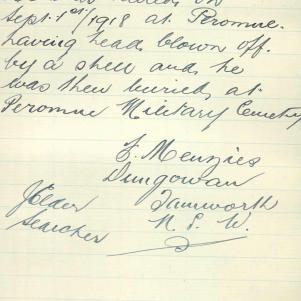 Sept. 1st/1918 at Peronne.
having head blown off.
by a shell and he
was then buried at
Peronne Military Cemetery
F. Menzies
Dungowan
Tamworth
N. S. W.
J Elder
Searcher